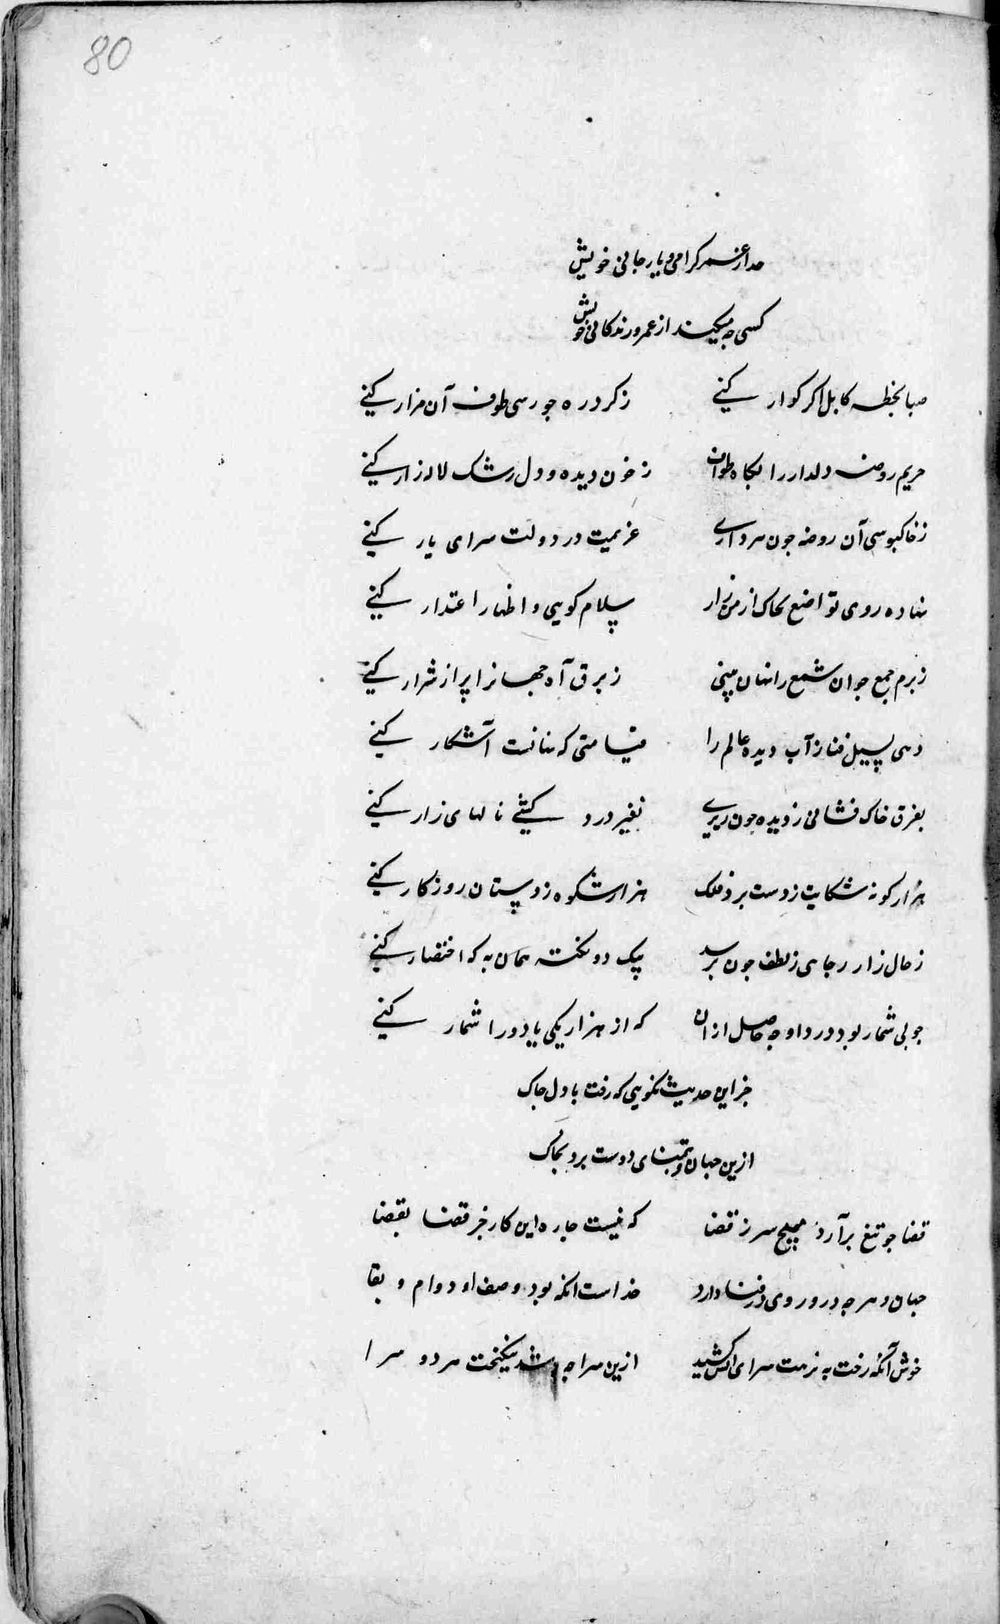 80
جدا ز عمر گرامی و یار جانی خویش
کسی چه میکند از عمر و زندکانی خویش
صبا بخطه کابل اکر کذار کنی ز کرد ره جو رسی طوف آن مزار کنی
حریم روضه دلدار را بکاه طواف ز خون دیده و دل رشک لاله زار کنی
ز خاکبوسی آن روضه جون سر داری عزیمت در دولت سرای یار کنی
نهاده روی تواضع بخاک از من زار سلام کویی و اظهار اعتذار کنی
ز بزم جمع جو آن شمع را نهان بینی ز برق آه جهانرا پر از شرار کنی
دهی بسیل فنا ز آب دیده عالم را قیامتی که نهانست آشکار کنی
بفرق خاک فشانی ز دیده خون ریزی نفیر درد کشی نالهای زار کنی
هزار کونه شکایت ز دست برد فلک هزار شکوه ز دوستان روزکار کنی
ز حال زار رجایی ز لطف جون پرسد بیک دو نکته همان به که اختصار کنی
جو بی شمار بود درد او جه حاصل ازان که از هزار یکی یا دو را شمار کنی
جز این حدیث نکویی که رفت با دل جاک
ازین جهان و تمنای دوست برد بخاک
قضا جو تیغ برآرد مپیج سر ز قضا که نیست جاره این کار جز رضا بقضا
جهان و هر جه درو روی در فنا دارد خداست آنکه بود وصف او دوام و بقا
خوش آنکه رخت به نزهت سرای انس کشید ازین سراجه